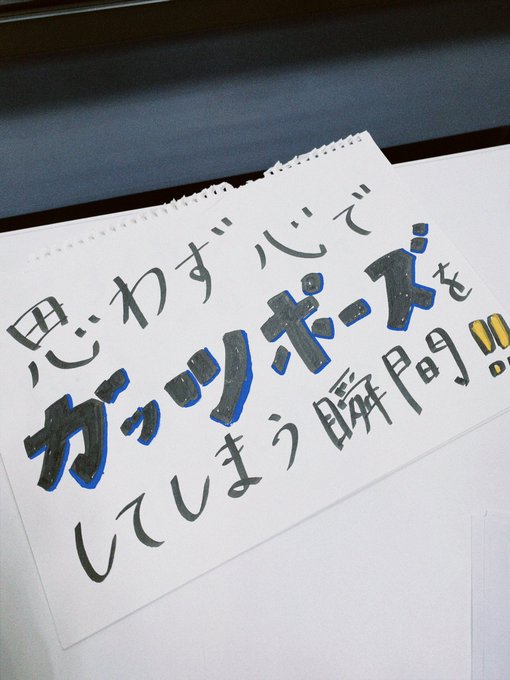 思わず心で
ガッツポーズを
してしまう瞬間!!